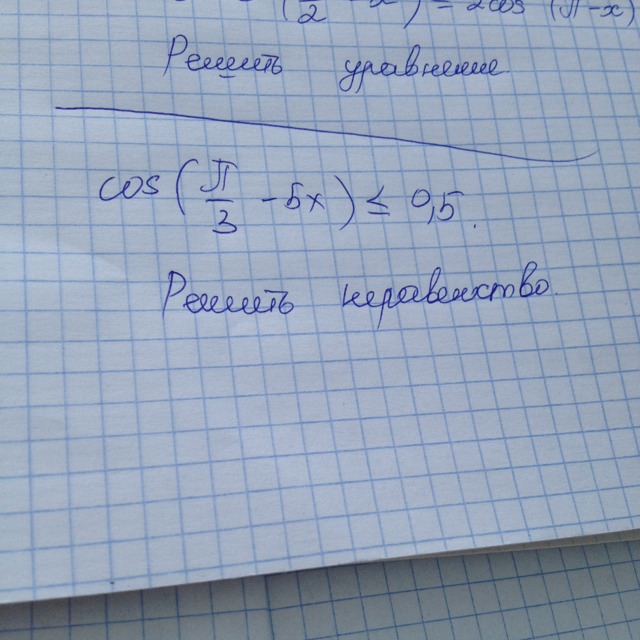 (π/2 - x) = 2cos (π-x)
Решить уравнение
cos(π/3 - 5x) ≤ 0,5.
Решить неравенство.